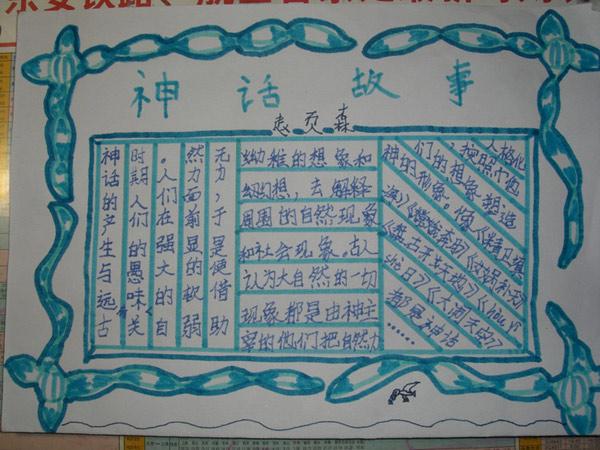 神话故事
森
神话的产生与远古
时期人们的愚味有关
。人们在强大的自
然力面前显的软弱
无力，于是便借助
幼稚的想象和
幻想，去解释
周围的自然现象
和社会现象。古人
认为大自然的一切
现象都是由神主
宰的他们把自然力
人格化
，按照
们的想象塑造
神的形象。像《精卫填
海》《嫦娥奔月》《女娲补天》
《盘古开天地》《hou yi
射日》《大闹天宫》
都是神话
……